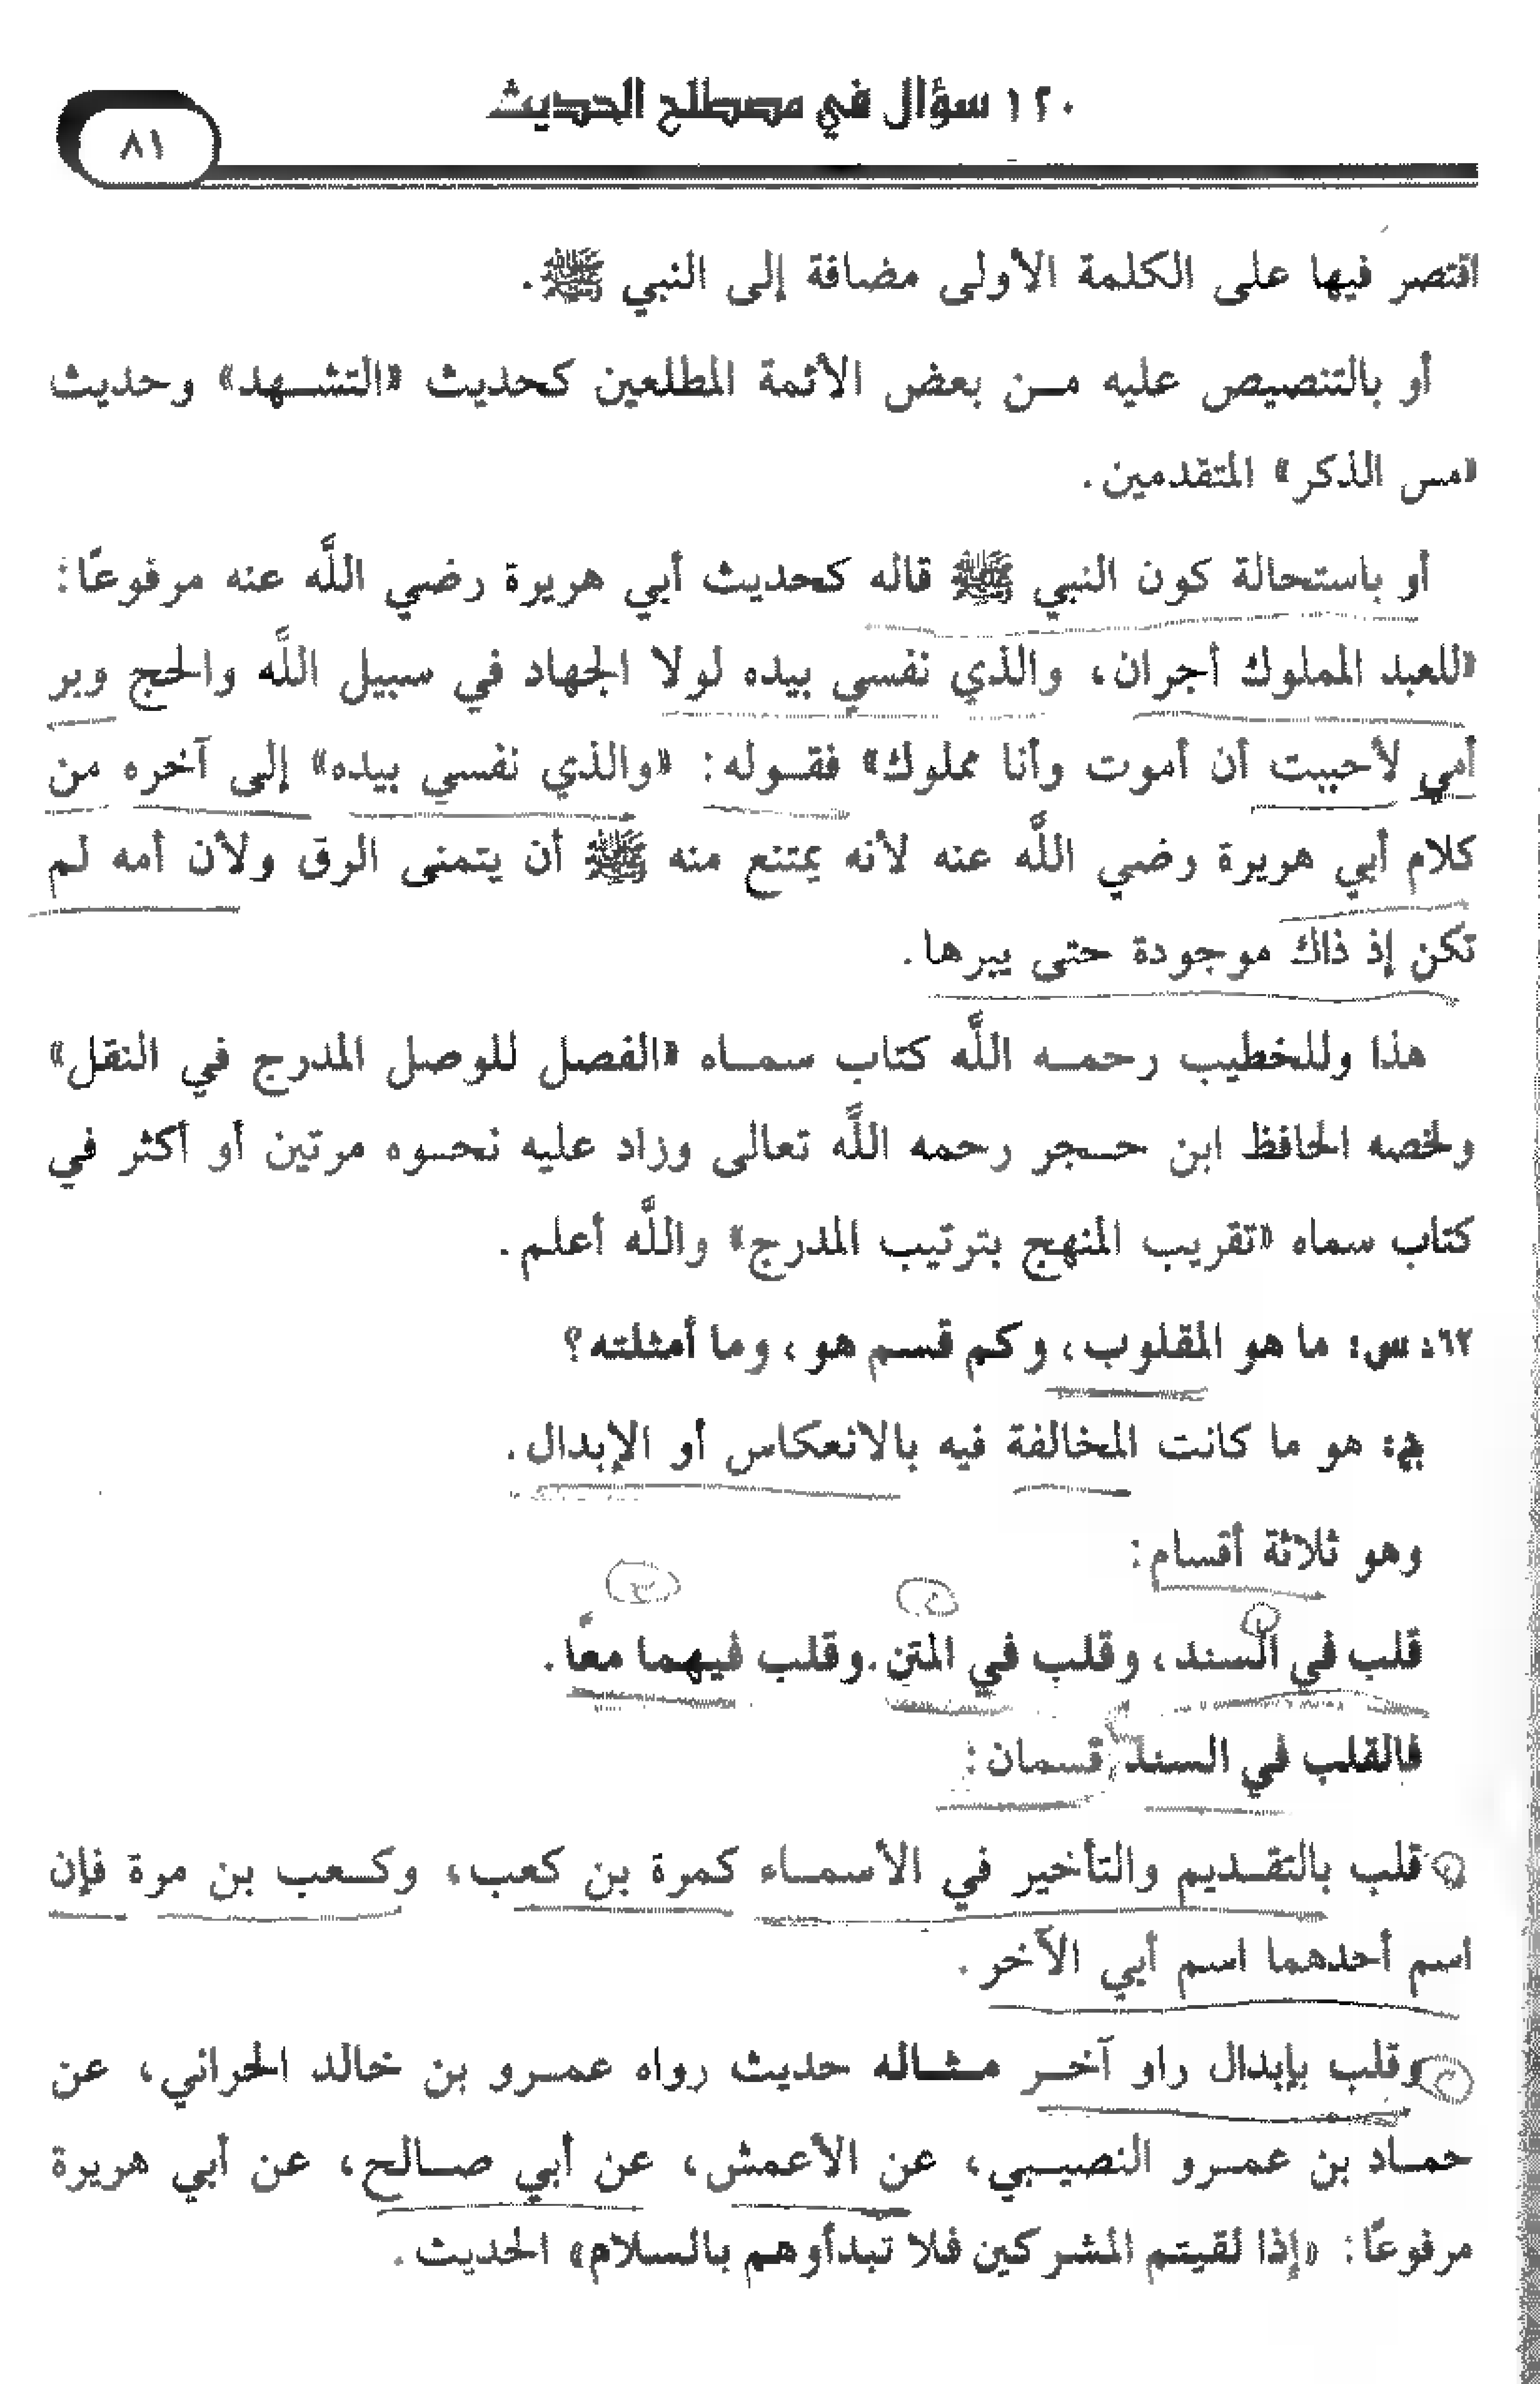 ١٢٠ سؤال في مصطلح الحديث
٨١
اقتصر فيها على الكلمة الأولى مضافة إلى النبي ﷺ.
أو بالتنصيص عليه من بعض الأئمة المطلعين كحديث «التشهد» وحديث
«مس الذكر» المتقدمين.
أو باستحالة كون النبي ﷺ قاله كحديث أبي هريرة رضي اللَّه عنه مرفوعًا:
«للعبد المملوك أجران، والذي نفسي بيده لولا الجهاد في سبيل اللَّه والحج وبر
أمي لأحببت أن أموت وأنا مملوك» فقوله: «والذي نفسي بيده» إلى آخره من
كلام أبي هريرة رضي اللَّه عنه لأنه يمتنع منه ﷺ أن يتمنى الرق ولأن أمه لم
تكن إذ ذاك موجودة حتى يبرها.
هذا وللخطيب رحمه اللَّه كتاب سماه «الفصل للوصل المدرج في النقل»
ولخصه الحافظ ابن حجر رحمه اللَّه تعالى وزاد عليه نحوه مرتين أو أكثر في
كتاب سماه «تقريب المنهج بترتيب المدرج» واللَّه أعلم.
٦٢: س: ما هو المقلوب، وكم قسم هو، وما أمثلته؟
ج: هو ما كانت المخالفة فيه بالانعكاس أو الإبدال.
وهو ثلاثة أقسام:
قلب في السند، وقلب في المتن.وقلب فيهما معًا.
فالقلب في السند قسمان:
قلب بالتقديم والتأخير في الأسماء كمرة بن كعب، وكعب بن مرة فإن
اسم أحدهما اسم أبي الآخر.
وقلب بإبدال راو آخر مثاله حديث رواه عمرو بن خالد الحراني، عن
حماد بن عمرو النصيبي، عن الأعمش، عن أبي صالح، عن أبي هريرة
مرفوعًا: «إذا لقيتم المشركين فلا تبدأوهم بالسلام» الحديث.